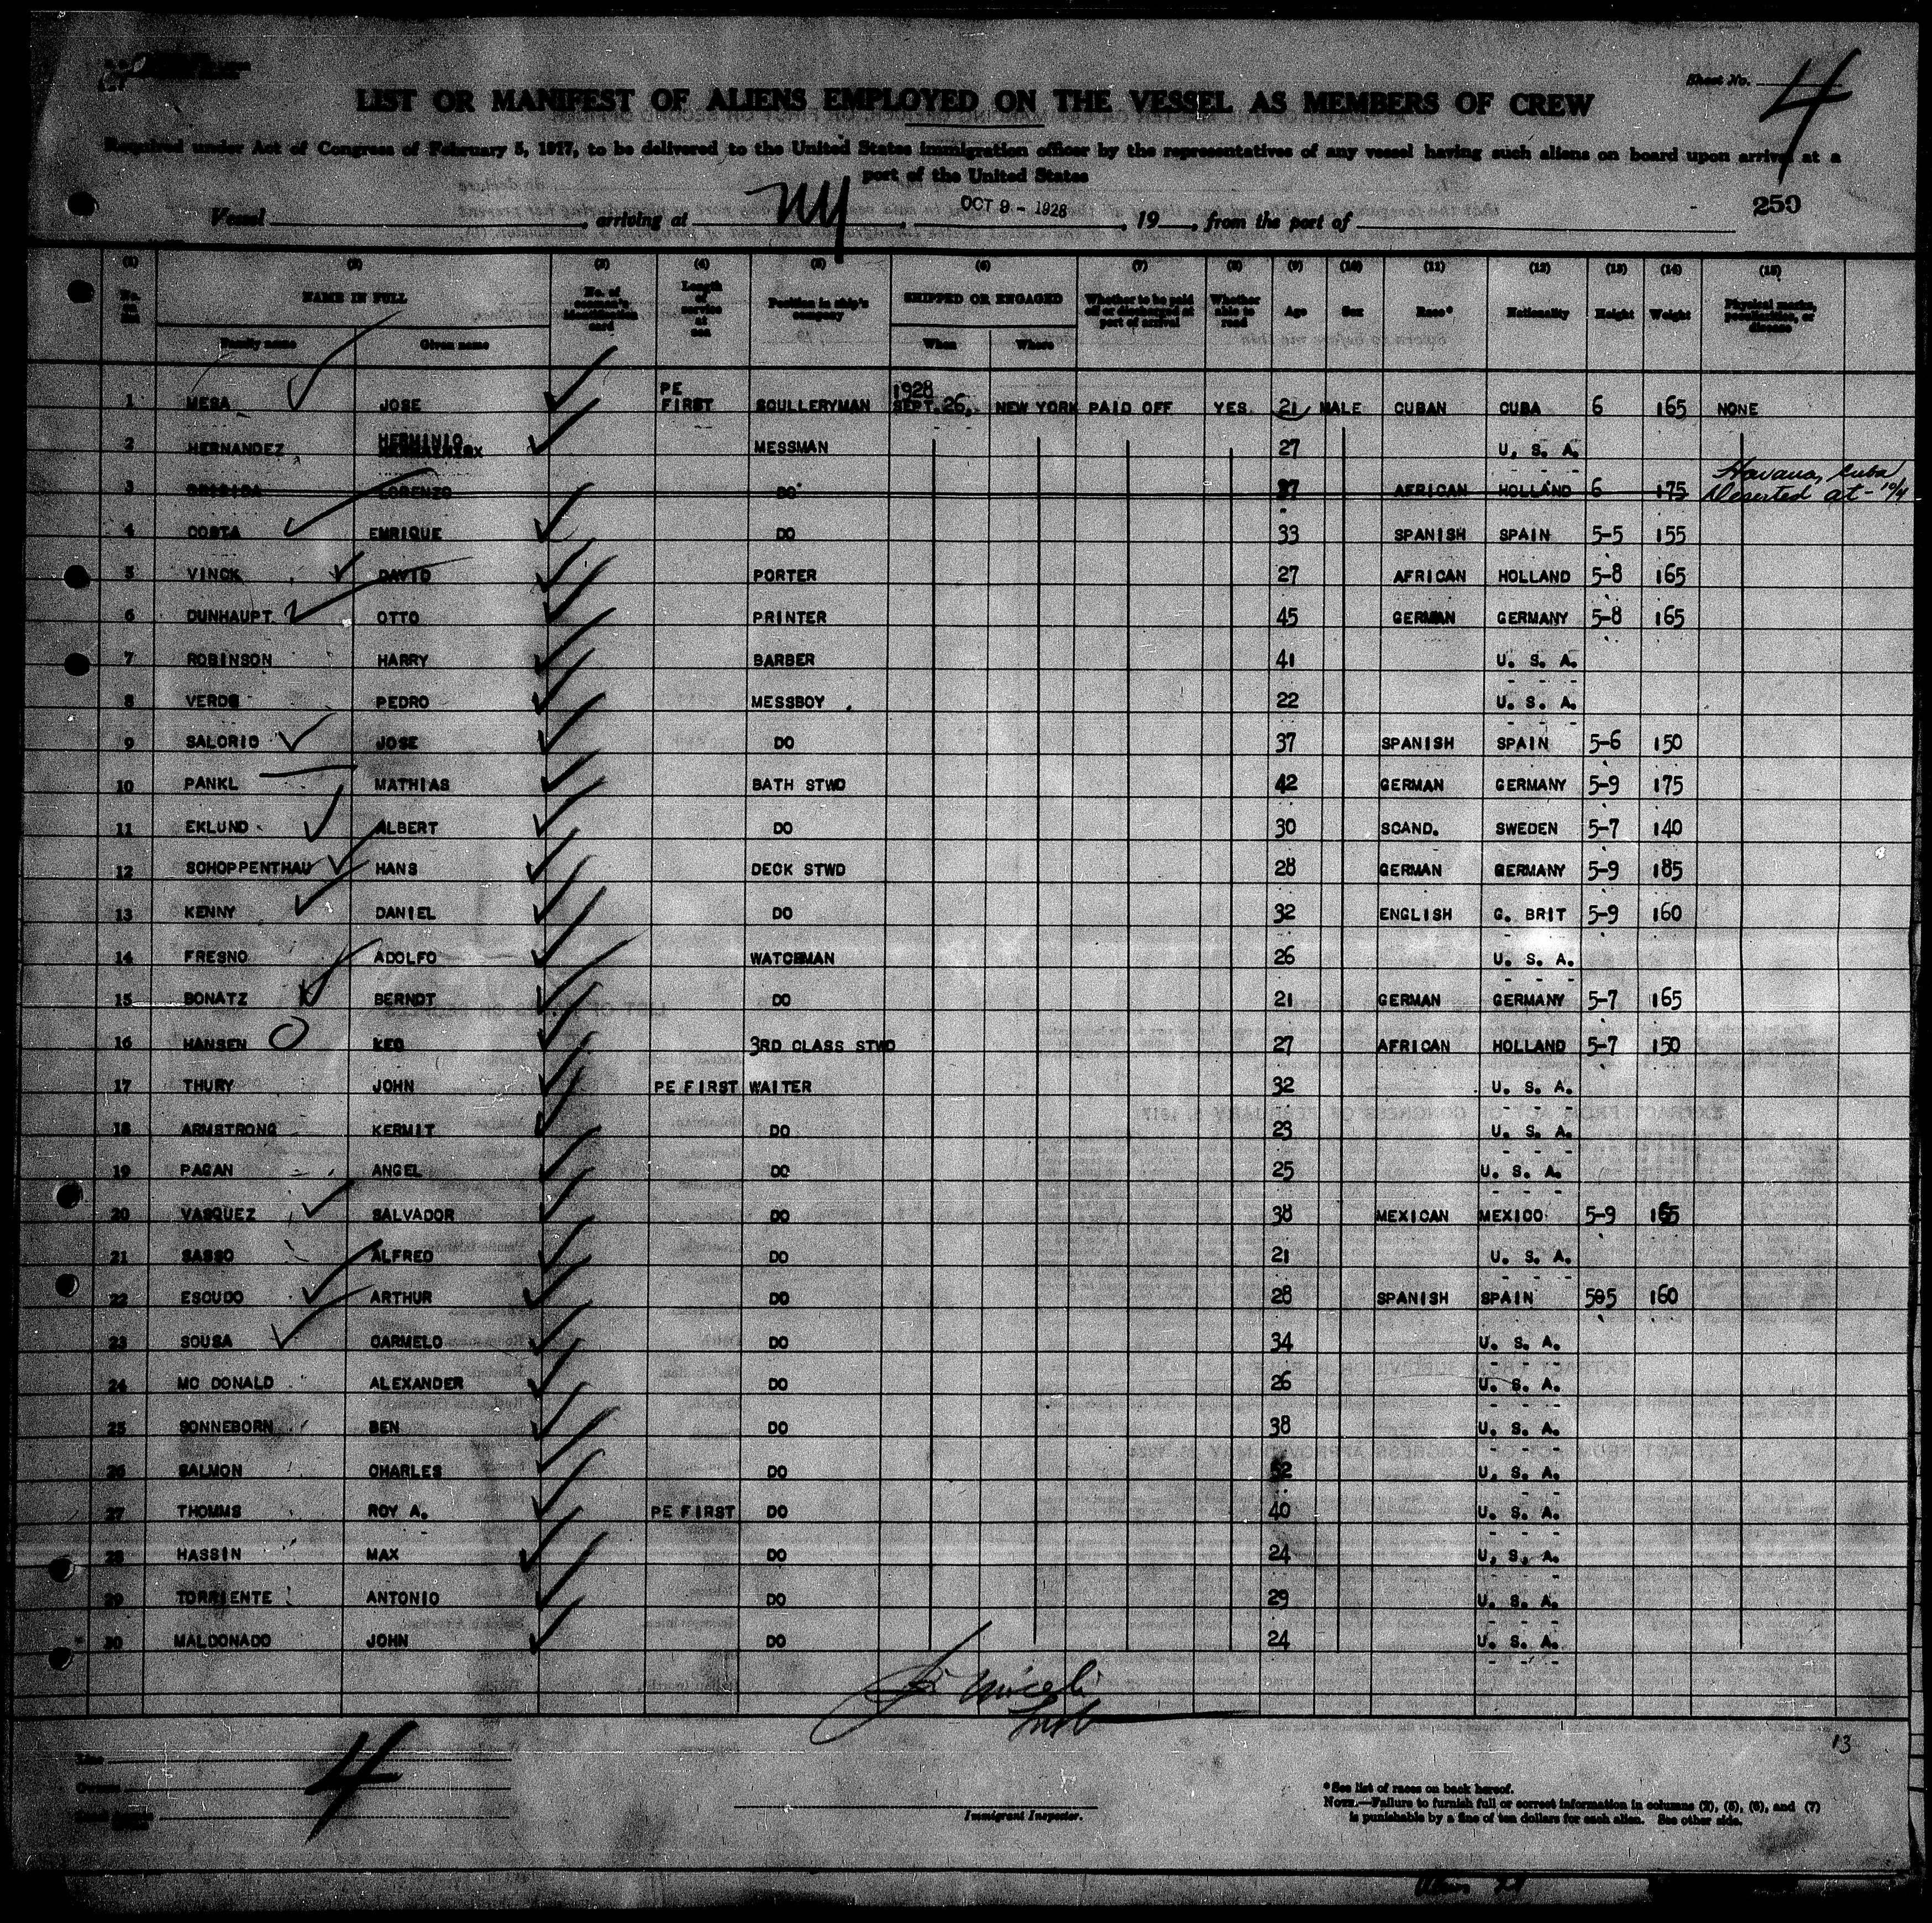 Sheet No. 4
LIST OR MANIFEST OF ALIENS EMPLOYED ON THE VESSEL AS MEMBERS OF CREW
Required under Act of Congress of February 5, 1917, to be delivered to the United States immigration officer by the representatives of any vessel having such aliens on board upon arrival at a
port of the United States
Vessel , arriving at NY , OCT 9 - 1928 , 19 , from the port of
250
(1) (2) (3) (4) (5) (6) (7) (8) (9) (10) (11) (12) (13) (14) (15)
No. on list NAME IN FULL Family name Given name No. of seaman's identification card Length of service at sea Position in ship's company SHIPPED OR ENGAGED When Where Whether to be paid off or discharged at port of arrival Whether able to read Age Sex Race* Nationality Height Weight Physical marks, peculiarities, or disease
1 MESA JOSE PE FIRST SCULLERYMAN 1928 SEPT. 26, NEW YORK PAID OFF YES 21 MALE CUBAN CUBA 6 165 NONE
2 HERNANDEZ HERMINIO MESSMAN 27 U. S. A.
3 LORENZO DO 37 AFRICAN HOLLAND 6 175 Havana, Cuba Deserted at - 10/4
4 COSTA ENRIQUE DO 33 SPANISH SPAIN 5-5 155
5 VINCK DAVID PORTER 27 AFRICAN HOLLAND 5-8 165
6 DUNHAUPT OTTO PRINTER 45 GERMAN GERMANY 5-8 165
7 ROBINSON HARRY BARBER 41 U. S. A.
8 VERDE PEDRO MESSBOY 22 U. S. A.
9 SALORIO JOSE DO 37 SPANISH SPAIN 5-6 150
10 PANKL MATHIAS BATH STWD 42 GERMAN GERMANY 5-9 175
11 EKLUND ALBERT DO 30 SCAND. SWEDEN 5-7 140
12 SCHOPPENTHAU HANS DECK STWD 28 GERMAN GERMANY 5-9 185
13 KENNY DANIEL DO 32 ENGLISH G. BRIT 5-9 160
14 FRESNO ADOLFO WATCHMAN 26 U. S. A.
15 BONATZ BERNDT DO 21 GERMAN GERMANY 5-7 165
16 HANSEN KEO 3RD CLASS STWD 27 AFRICAN HOLLAND 5-7 150
17 THURY JOHN PE FIRST WAITER 32 U. S. A.
18 ARMSTRONG KERMIT DO 23 U. S. A.
19 PAGAN ANGEL DO 25 U. S. A.
20 VASQUEZ SALVADOR DO 38 MEXICAN MEXICO 5-9 165
21 SASSO ALFRED DO 21 U. S. A.
22 ESCUDO ARTHUR DO 28 SPANISH SPAIN 505 160
23 SOUSA CARMELO DO 34 U. S. A.
24 MC DONALD ALEXANDER DO 26 U. S. A.
25 SONNEBORN BEN DO 38 U. S. A.
26 SALMON CHARLES DO 52 U. S. A.
27 THOMMS ROY A. PE FIRST DO 40 U. S. A.
28 HASSIN MAX DO 24 U. S. A.
29 TORRIENTE ANTONIO DO 29 U. S. A.
30 MALDONADO JOHN DO 24 U. S. A.
13
Line
Owners
4
Immigrant Inspector.
*See list of races on back hereof.
NOTE.—Failure to furnish full or correct information in columns (2), (5), (6), and (7)
is punishable by a fine of ten dollars for each alien. See other side.